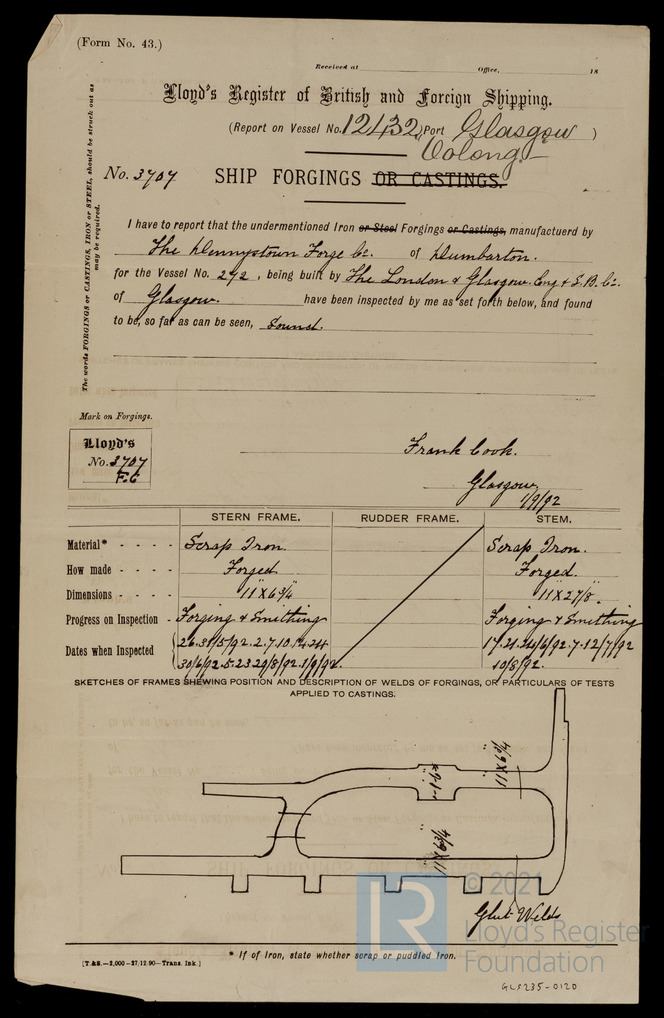 (Form No. 43.)
Received at Office, 18
Lloyd's Register of British and Foreign Shipping.
(Report on Vessel No. 12432 Port Glasgow )
Oolong
No. 3707 SHIP FORGINGS OR CASTINGS.
The words FORGINGS or CASTINGS, IRON or STEEL, should be struck out as
may be required.
I have to report that the undermentioned Iron or Steel Forgings or Castings, manufactuerd by
The Dennystown Forge Co. of Dumbarton.
for the Vessel No. 272, being built by The London & Glasgow Eng & S. B. Co.
of Glasgow. have been inspected by me as set forth below, and found
to be, so far as can be seen, Sound.
Mark on Forgings.
Lloyd's
No. 3707
F.C
Frank Cook.
Glasgow
1/9/92
STERN FRAME. RUDDER FRAME. STEM.
Material* - - - - Scrap Iron. Scrap Iron.
How made - - - - Forged Forged.
Dimensions - - - - 11" x 6 3/4 11" x 2 7/8".
Progress on Inspection - Forging & Smithing Forging & Smithing
Dates when Inspected 26.31/5/92. 2.7.10.14.24 17.21.24/6/92. 7.12/7/92
30/6/92. 5.23.29/8/92. 1/9/92. 10/8/92.
SKETCHES OF FRAMES SHEWING POSITION AND DESCRIPTION OF WELDS OF FORGINGS, OR PARTICULARS OF TESTS
APPLIED TO CASTINGS.
11 x 6 3/4
11 x 6 3/4
Glut Welds
* If of Iron, state whether scrap or puddled iron.
[T & S.—2,000—27/12/90—Trans. Ink.]
© 2021
LR
Lloyd's Register
Foundation
GLS235-0120